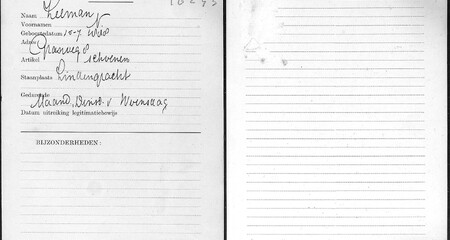 Naam Leeman N
Voornamen
Geboortedatum
Adres
Artikel schoenen
Standplaats Lindengracht
Gedurende
Maand, Dinsd. v Woensdag
Datum uitreiking legitimatiebewijs
BIJZONDERHEDEN: